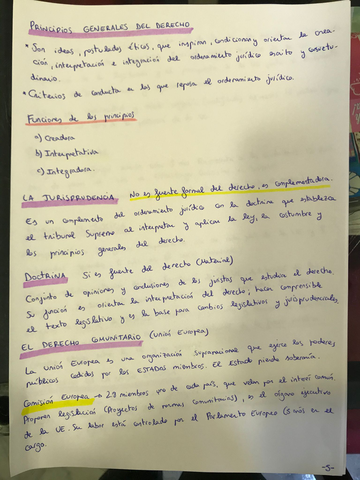 PRINCIPIOS GENERALES DEL DERECHO
• Son ideas, postulados éticos, que inspiran, condicionan y orientan la crea-
ción, interpretación e integración del ordenamiento jurídico escrito y consuetu-
dinario.
• Criterios de conducta en los que reposa el ordenamiento jurídico.
Funciones de los principios
a) Creadora
b) Interpretativa
c) Integradora.
LA JURISPRUDENCIA No es fuente formal del derecho, es complementadora.
Es un complemento del ordenamiento jurídico con la doctrina que establezca
el tribunal Supremo al interpretar y aplicar la ley, la costumbre y
los principios generales del derecho.
DOCTRINA Si es fuente del derecho (Material)
Conjunto de opiniones y conclusiones de los juristas que estudian el derecho
Su función es orientar la interpretación del derecho; hacen comprensible
el texto legislativo y es la base para cambios legislativos y jurisprudenciales.
EL DERECHO COMUNITARIO (Unión Europea)
La unión Europea es una organización supranacional que ejerce los poderes
públicos cedidos por los ESTADOS miembros. El estado pierde soberanía.
Comisión Europea → 27 miembros uno de cada país, que velan por el interés común.
Proponen legislación (Proyectos de normas comunitarias), es el órgano ejecutivo
de la UE. Su labor está controlada por el Parlamento Europeo (5 años en el
cargo.
-5-